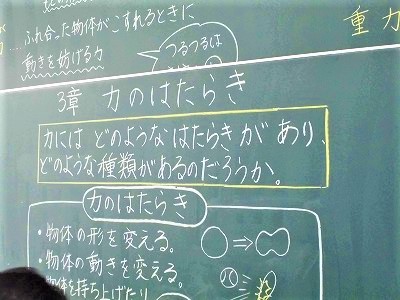 …ふれ合った物体がこすれるときに
動きを妨げる力
つるつるは
重力
3章 力のはたらき
力には どのようなはたらきが あり、
どのような種類があるのだろうか。
力のはたらき
・物体の形を変える。
・物体の動きを変える。
物体を持ち上げたり